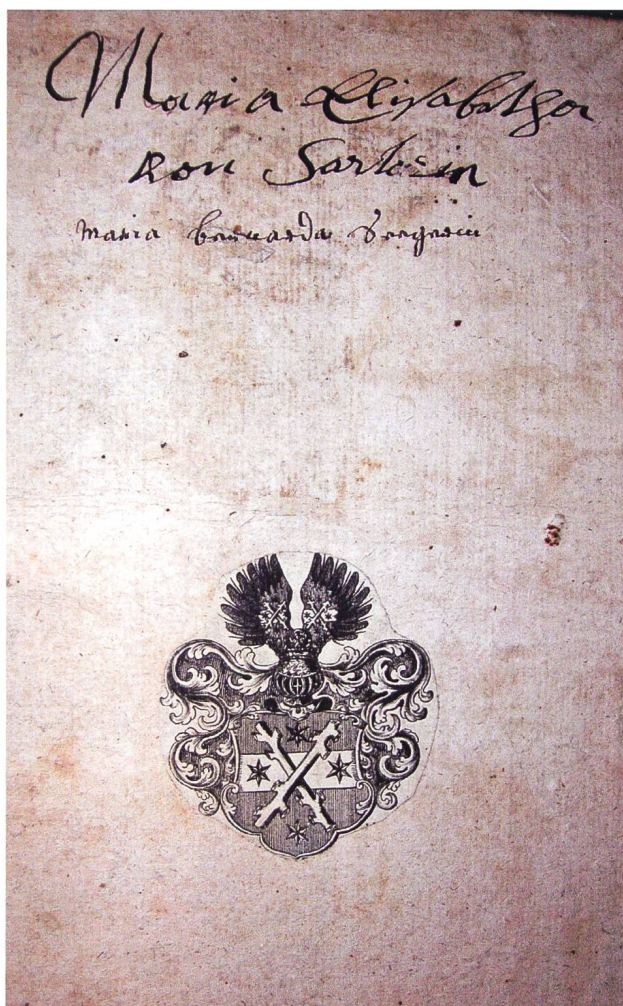 Maria Elisabetha
von Sartorin
maria bernarda Seegerin